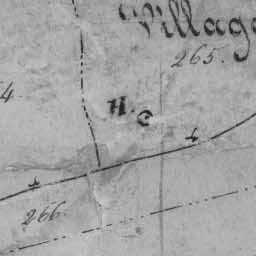 Village
265.
4.
H.C
266.